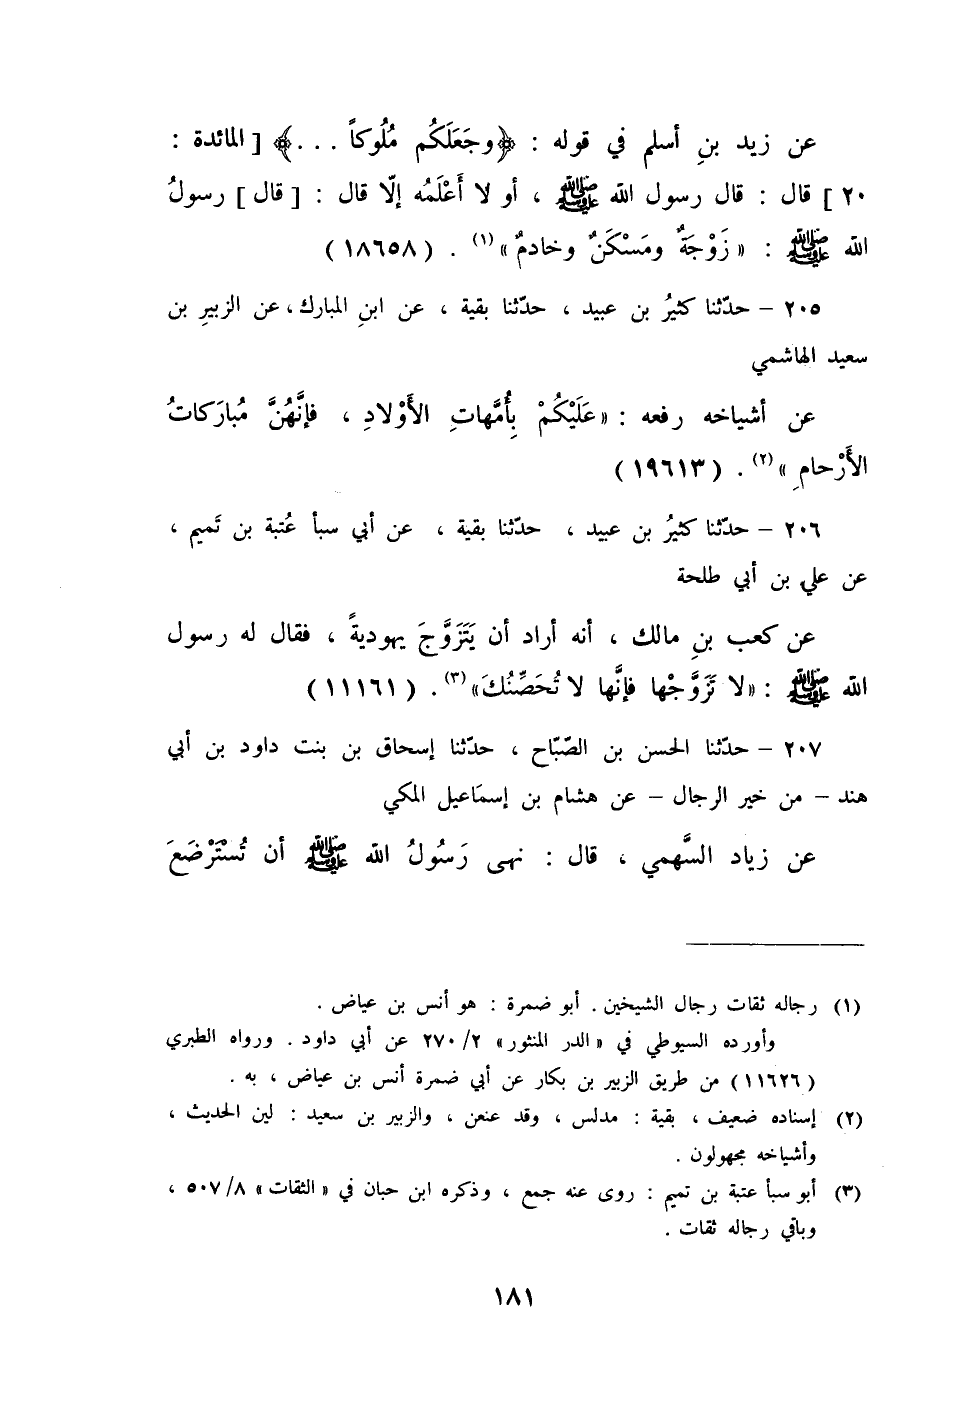 عن زيد بنِ أسلم في قوله : ﴿وجَعَلَكُم مُلُوكاً . . .﴾ [ المائدة :
٢٠ ] قال : قال رسول الله ﷺ ، أو لا أَعْلَمُه إلّا قال : [ قال ] رسولُ
الله ﷺ : « زَوْجَةٌ ومَسْكَنٌ وخادمٌ »(١) . (١٨٦٥٨)
٢٠٥ – حدّثنا كثيرُ بن عبيد ، حدّثنا بقية ، عن ابنِ المبارك، عن الزبيرِ بن
سعيد الهاشمي
عن أشياخه رفعه : «عَلَيْكُمْ بِأُمَّهاتِ الأَوْلادِ ، فإنَّهُنَّ مُبارَكاتُ
الأَرْحامِ »(٢) . (١٩٦١٣)
٢٠٦ – حدّثنا كثيرُ بن عبيد ، حدّثنا بقية ، عن أبي سبأ عُتبة بن تَميم ،
عن علي بن أبي طلحة
عن كعب بنِ مالك ، أنه أراد أن يَتَزَوَّجَ يهوديةً ، فقال له رسول
الله ﷺ : «لا تَزَوَّجْها فإنَّها لا تُحَصِّنُكَ»(٣). (١١١٦١)
٢٠٧ – حدّثنا الحسن بن الصّبّاح ، حدّثنا إسحاق بن بنت داود بن أبي
هند – من خير الرجال – عن هشام بن إسمَاعيل المكي
عن زياد السَّهمي ، قال : نهى رَسُولُ الله ﷺ أن تُسْتَرْضَعَ
(١) رجاله ثقات رجال الشيخين . أبو ضمرة : هو أنس بن عياض .
وأورده السيوطي في «الدر المنثور» ٢٧٠/٢ عن أبي داود . ورواه الطبري
(١١٦٢٦) من طريق الزبير بن بكار عن أبي ضمرة أنس بن عياض ، به .
(٢) إسناده ضعيف ، بقية : مدلس ، وقد عنعن ، والزبير بن سعيد : لين الحديث ،
وأشياخه مجهولون .
(٣) أبو سبأ عتبة بن تميم : روى عنه جمع ، وذكره ابن حبان في «الثقات» ٥٠٧/٨ ،
وباقي رجاله ثقات .
١٨١